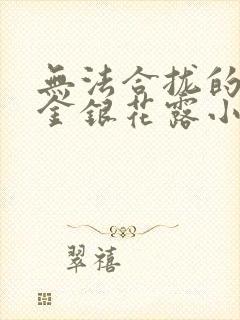 無法合拢的
金銀花露小
翠禧